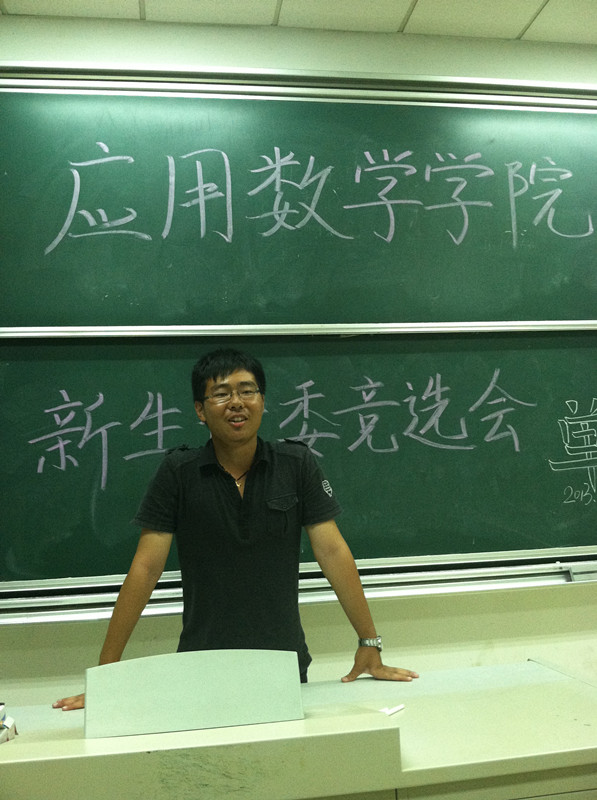 应用数学学院
新生 委竞选会
2013.